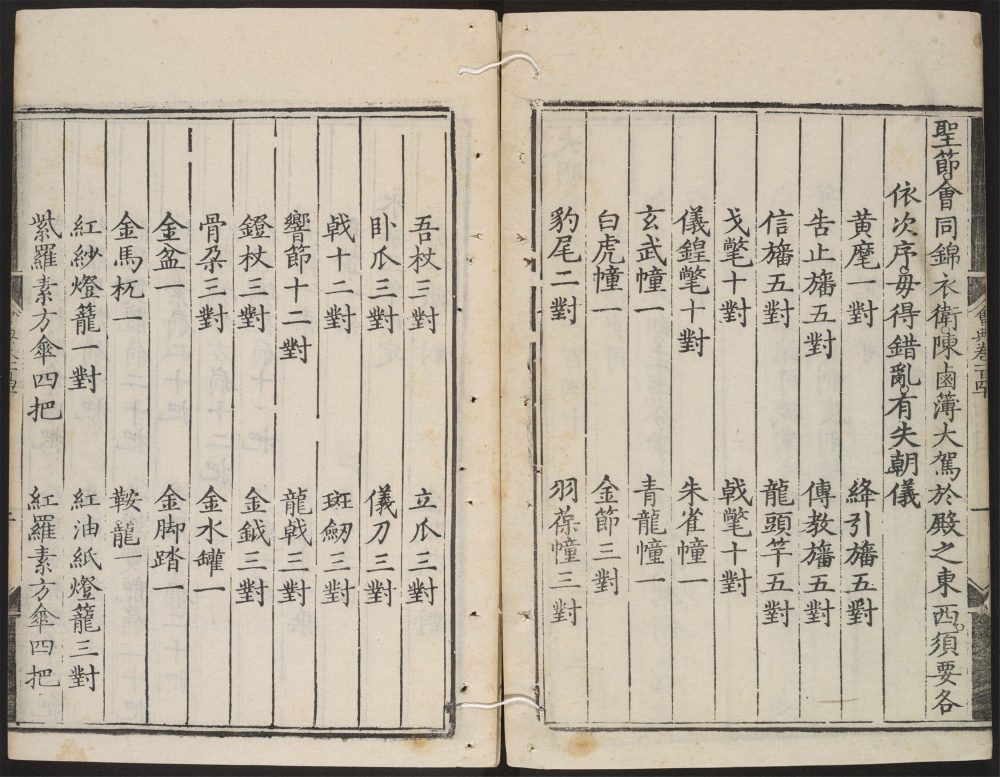 聖節會同錦衣衛陳鹵薄大駕於殿之東西須要各
依次序毋得錯亂有失朝儀
黄麾一對 絳引旛五對
告止旛五對 傳教旛五對
信旛五對 龍頭竿五對
戈氅十對 戟氅十對
儀鍠氅十對 朱雀幢一
玄武幢一 青龍幢一
白虎幢一 金節三對
豹尾二對 羽葆幢三對
會典卷一百四十
吾杖三對 立瓜三對
卧瓜三對 儀刀三對
戟十二對 斑劒三對
響節十二對 龍戟三對
鐙杖三對 金鉞三對
骨朶三對 金水罐一
金盆一 金脚踏一
金馬杌一 鞍龍一
紅紗燈籠一對 紅油紙燈籠三對
紫羅素方傘四把 紅羅素方傘四把